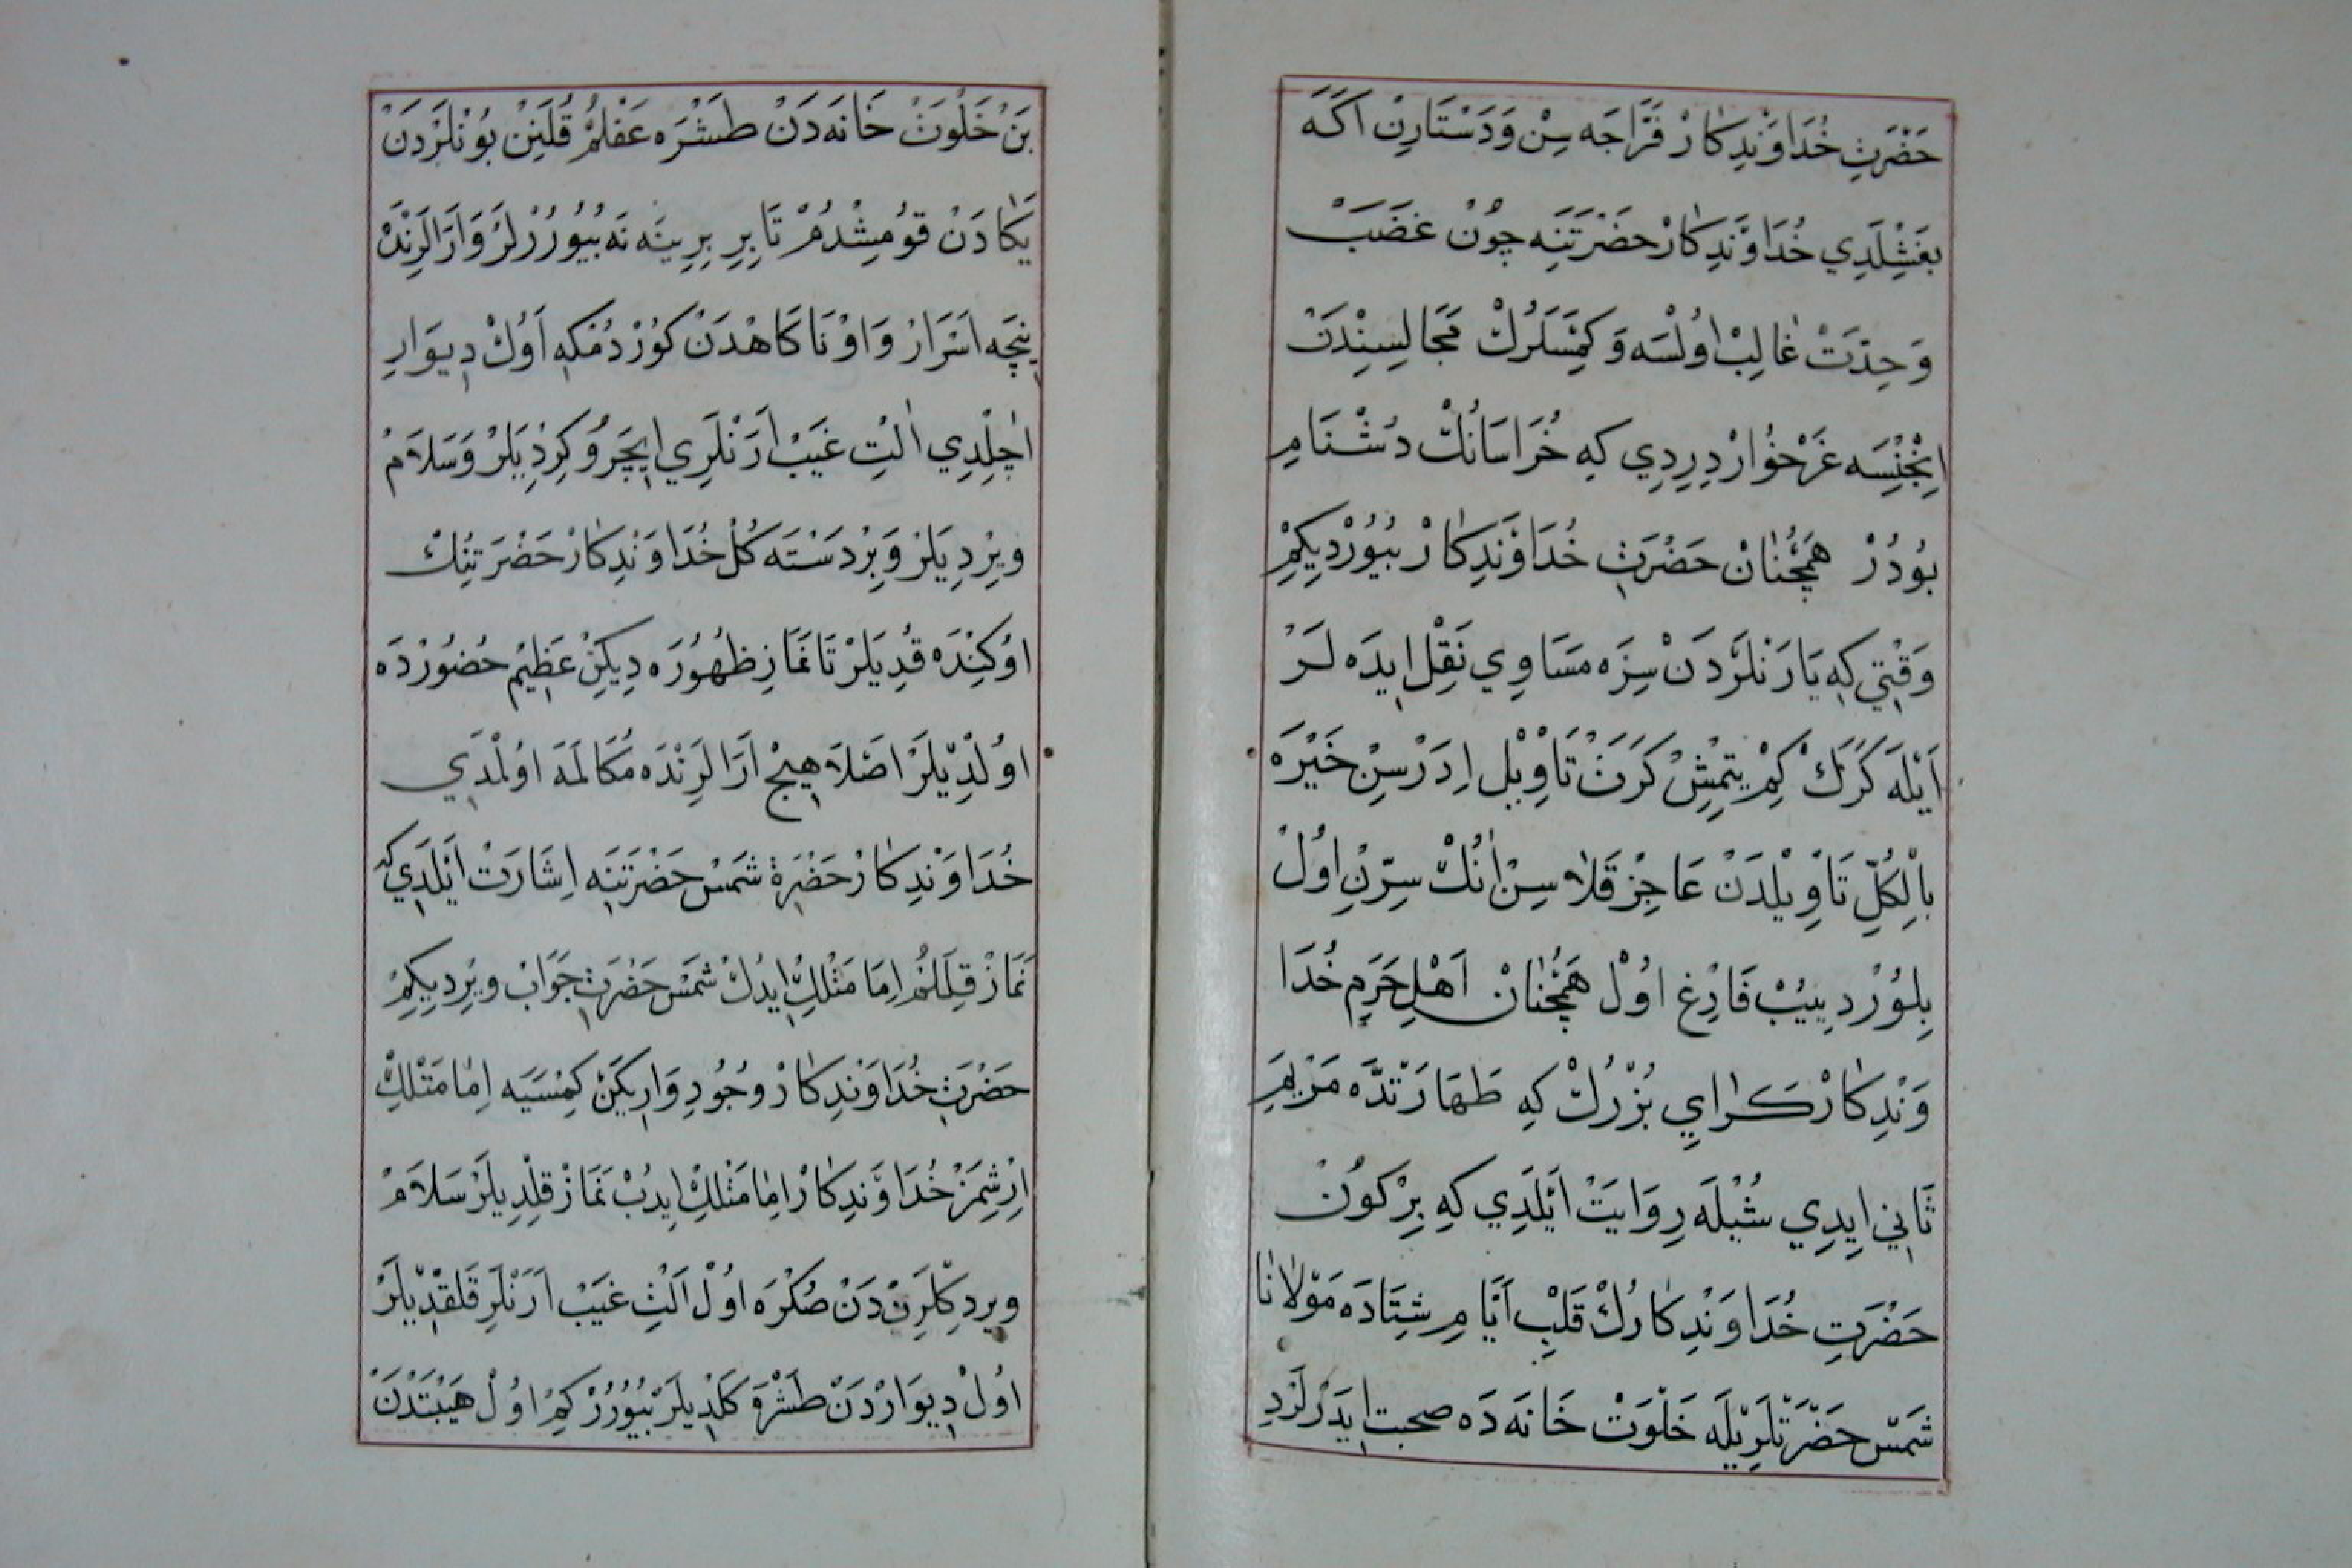 حَضْرَتِ خُدَاوَنْدِكَارْ فَرَّاجَه سِنْ وَدَسْتَارِنْ اَكَه
بغَشِلَدِي خُدَاوَنْدِكَارْ حَضْرَتَنِه چُونْ غَضَبْ
وَحِدَّتْ غَالِبْ اُولْسَه وَكِمْسَلَرُكْ مَجَالِسِنْدَنْ
اِنْجِنْسَه غَرْخُوارْ دِرِدِي كِه خُرَاسَانُكْ دُشْنَامِ
بُودُرْ هَمْچُنَانْ حَضْرَتِ خُدَاوَنْدِكَارْ بُيُورْدِيكِمْ
وَقْتِي كِه يَارَنْلَرْدَنْ سِزَه مَسَاوِي نَقِلْ اِيدَه لَرْ
اَيْلَه كَرَكْ كِمْ يِتْمِشْ كَرَنْ تَاوِيلْ اِدَرْسِنْ خَيْرَه
بِالْكُلِّ تَاوِيلْدَنْ عَاجِزْ قَلَاسِنْ اَنُكْ سِرِّنِ اُولْ
بِلُورْ دِيِيُبْ فَارِغْ اُولْ هَمْچُنَانْ اَهْلِ حَرَمِ خُدَا
وَنْدِكَارْ كَرَايِ بُزْرُكْ كِه طَهَارَتْدَه مَرْيَمِ
ثَانِي اِيدِي شُبْلَه رِوَايَتْ اَيْلَدِي كِه بِرْ كُونْ
حَضْرَتِ خُدَاوَنْدِكَارُكْ قَلْبِ اَيَّامِ شِتَادَه مَوْلَانَا
شَمْسْ حَضْرَتْلَرِيلَه خَلْوَتْ خَانَه دَه صحبت اِيدَرْلَرْدِ
بَنْ خَلْوَتْ خَانَه دَنْ طَشْرَه عَقْلُمْ قُلَغِنْ بُونْلَرْدَنْ
يَكَادَنْ قُومِشْدُمْ تَا بِرِ بِرِينَه نَه بُيُورُرْلَرْ وَ اَرَالَرِنْدَ
نِيچَه اَسْرَارْ وَار نَاكَاهْدَنْ كُورْدُمْكِه اَوُلْ دِيوَارِ
اَچِلْدِي اَلْتِ غَيْبْ اَرَنْلَرِي اِيچَرُو كِرْدِيلَرْ وَسَلَامْ
وِيرْدِيلَرْ وَبِرْ دَسْتَه كُلْ خُدَاوَنْدِكَارْ حَضْرَتِنُكْ
اُوكِنْدَه قُدِيلَرْ تَا نَمَازِ ظُهُورَه دِيكِنْ عَظِيمْ حُضُورْدَه
اُولْدِيلَرْ اَصْلَا هِيچْ اَرَالَرِنْدَه مُكَالَمَه اُولْمَدِي
خُدَاوَنْدِكَارْ حَضْرَة شَمْسْ حَضْرَتِنَه اِشَارَتْ اَيْلَدِي كه
نَمَازْ قِلَلُمْ اِمَامَتْلِكْ اِيدُكْ شَمْسْ حَضْرَتِ جَوَابْ وِيرْدِيكِمْ
حَضْرَتِ خُدَاوَنْدِكَارْ وُجُودِ وَارِيكَنْ كِمْسَيَه اِمَامَتْلِكْ
اِرِشْمَزْ خُدَاوَنْدِكَارْ اِمَامَتْلِكْ اِيدُبْ نَمَازْ قِلْدِيلَرْ سَلَامْ
وِيرْدِكْلَرِنْدَنْ صُكْرَه اُولْ اَلْتِ غَيْبْ اَرَنْلَرِ قَلْقْدِيلَرْ
اُولْ دِيوَارْدَنْ طَشْرَه كَلْدِيلَرْ بُيُورُرْ كِمْ اُولْ هَيْبَتْدَنْ